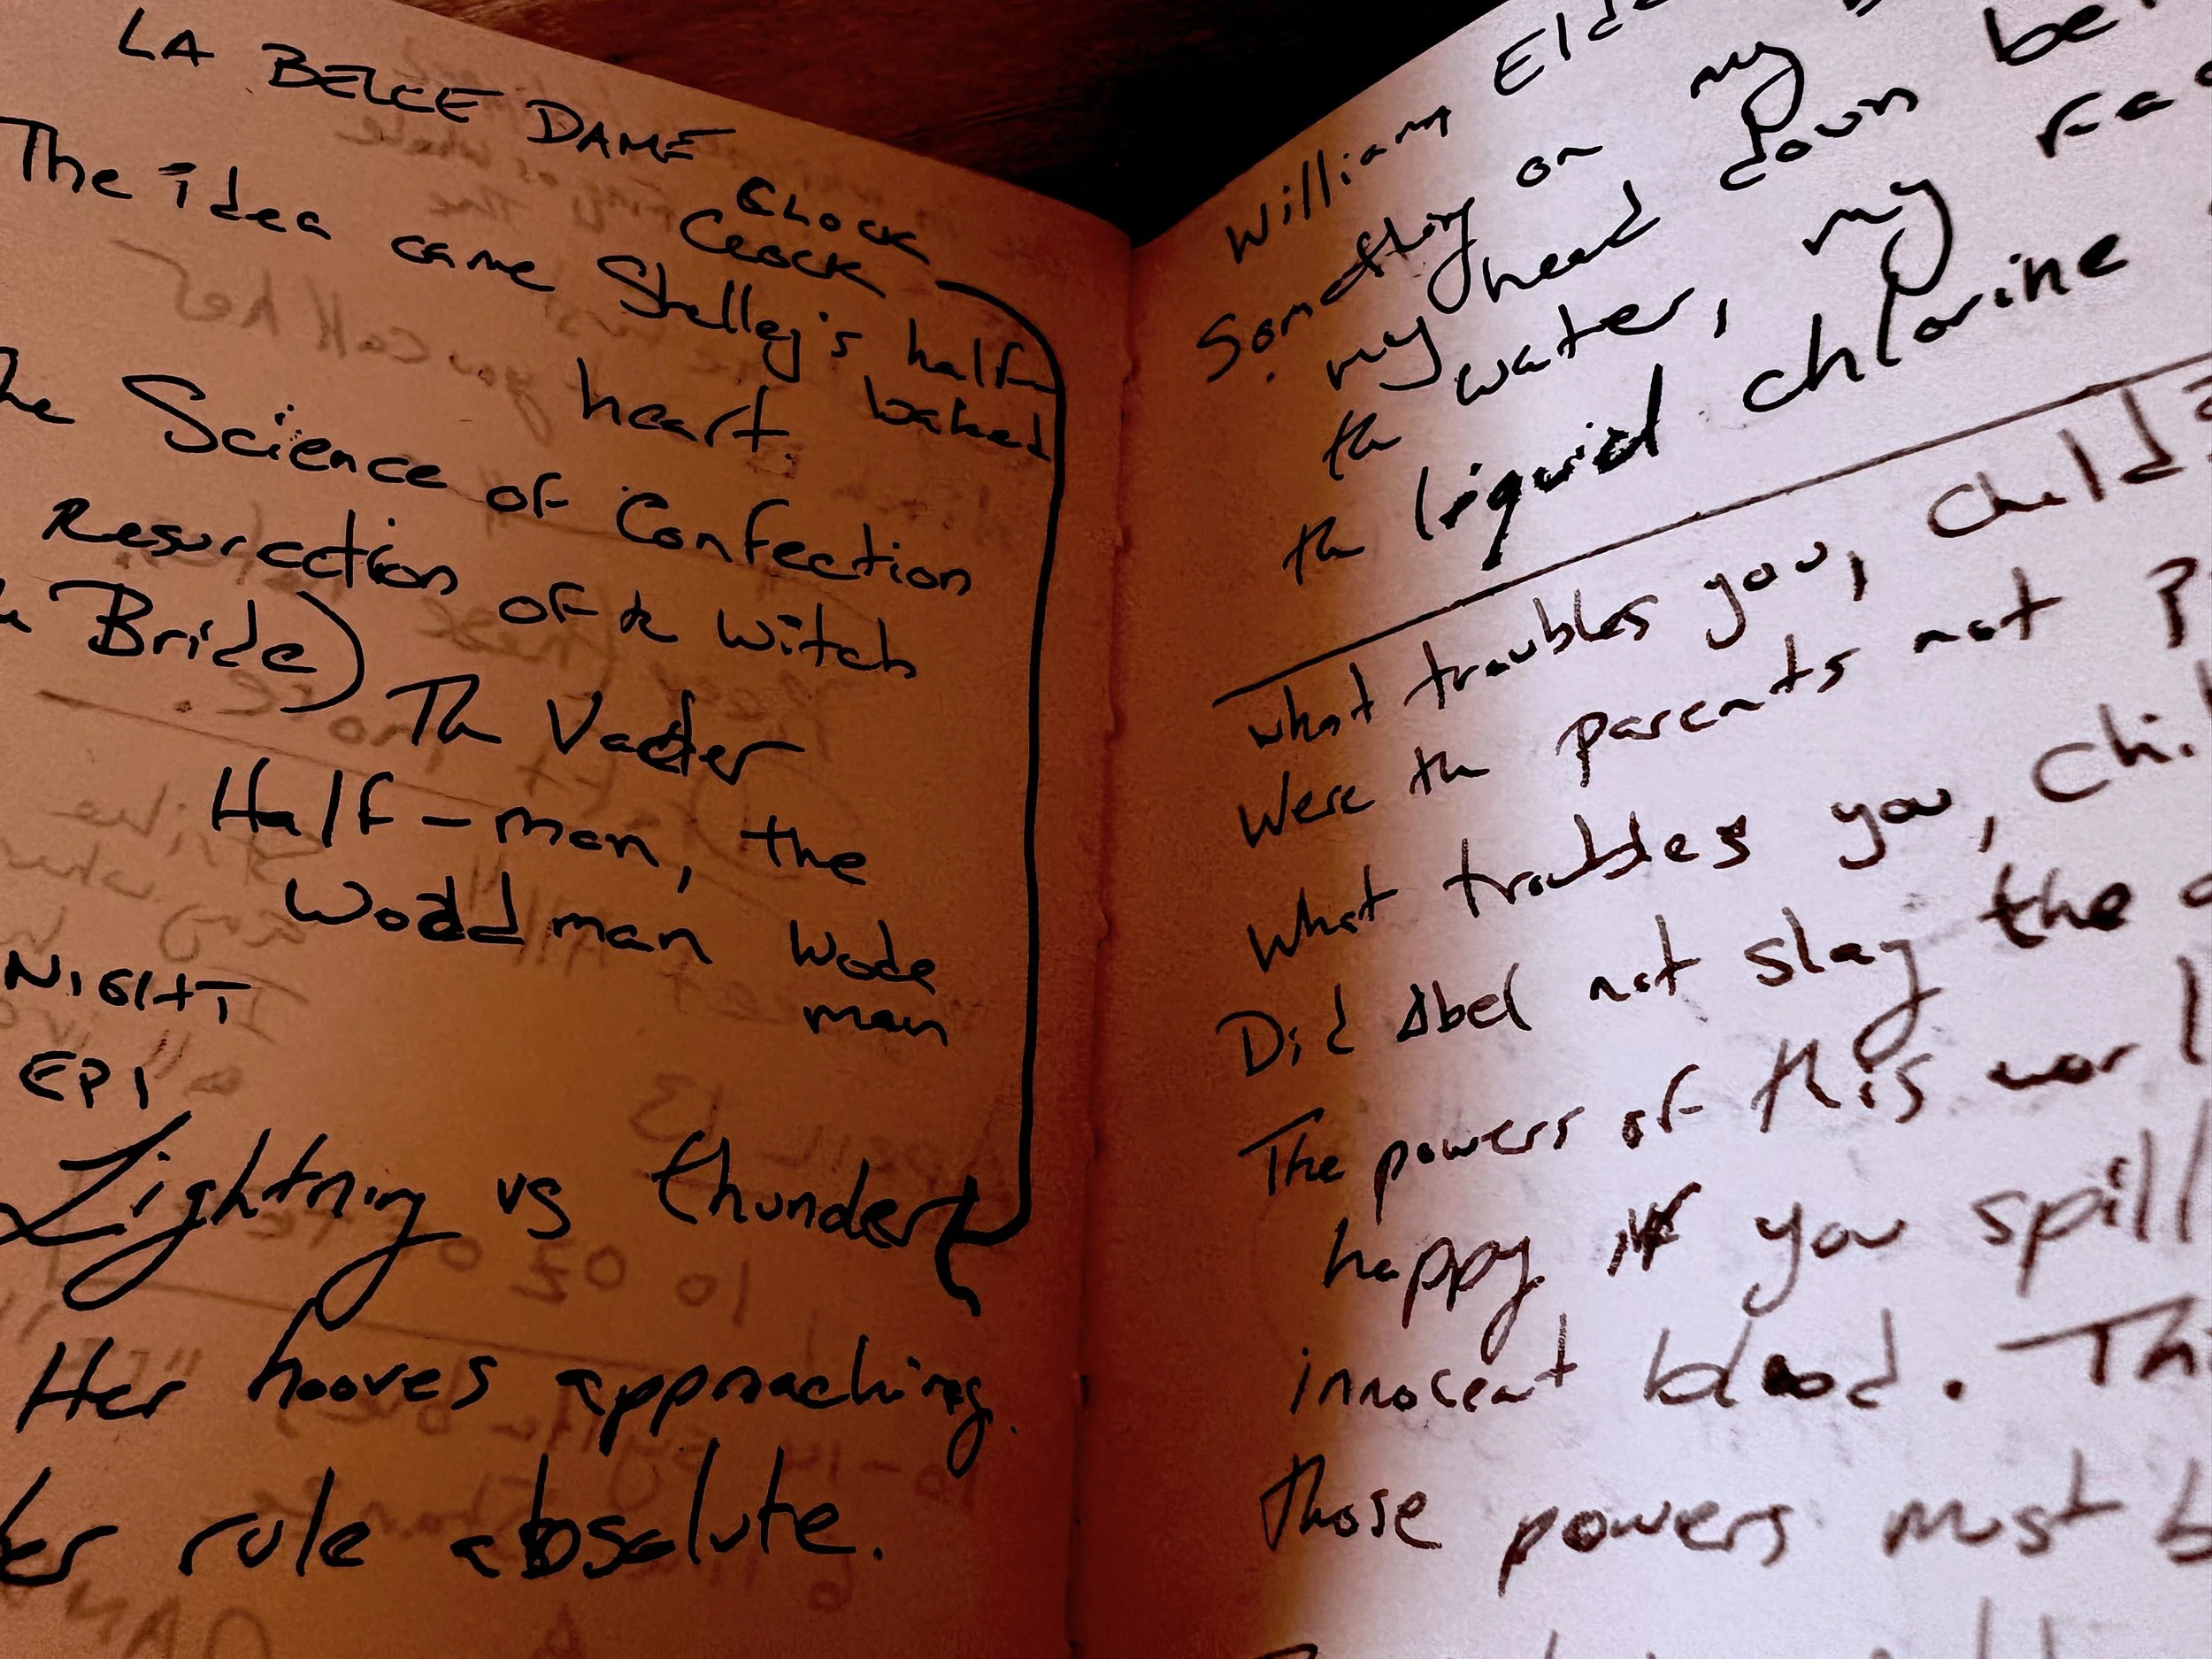 LA BELLE DAME
CLOCK
CLOCK
The idea came Shelley's half-
baked
heart.
The Science of Confection
Resurrection of a Witch
Bride) The Vader
Half-man, the
Woodman Wode
man
NIGHT
EP 1
Lightning vs thunder
Her hooves approaching.
Her rule absolute.
William
Something on my
my head down
the water, my
the liquid chlorine
What troubles you, child?
Were the parents not
What troubles you,
Did Abel not slay the
The powers of this
happy if you spill
innocent blood.
Those powers must